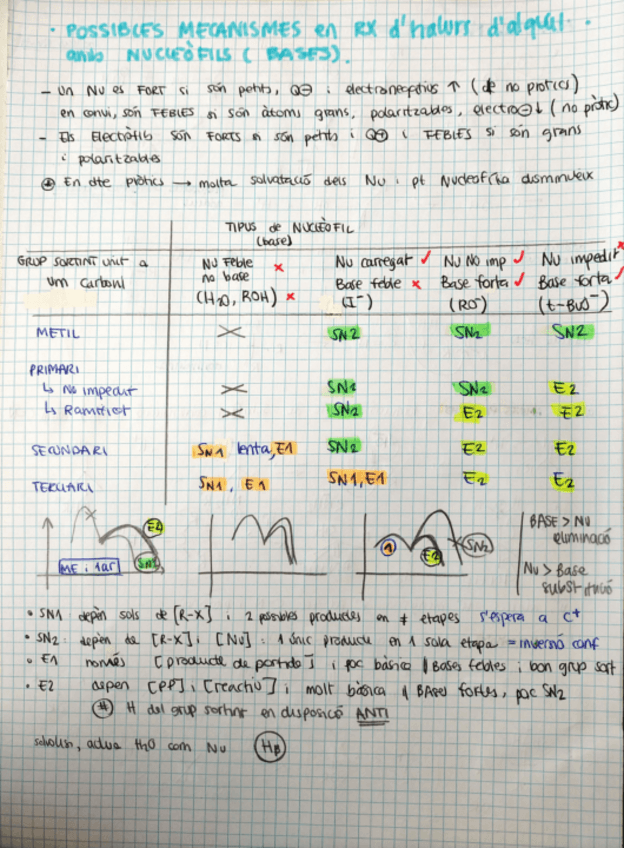 · POSSIBLES MECANISMES en RX d'halurs d'alquil ·
amb NUCLEÒFILS (BASES).
- Un Nu es FORT si són petits, Q⊖ i electronegatius ↑ (no pròtics)
en canvi, són FEBLES si són àtoms grans, polaritzables, electro⊖↓ (no pròtic)
- Els Electròfils són FORTS si són petits i Q⊕ i FEBLES si són grans
i polaritzables
En dte pròtics → molta solvatació dels Nu i pt Nucleofília disminueix
TIPUS de NUCLEÒFIL
(base)
GRUP SORTINT unit a
um carboni
Nu Feble ×
no base
(H2O, ROH) ×
Nu carregat ✓
Base feble ×
(I⁻)
Nu No imp ✓
Base forta ✓
(RO⁻)
Nu impedit ×
Base forta ✓
(t-BuO⁻)
METIL × SN2 SN2 SN2
PRIMARI
↳ No impedit × SN2 SN2 E2
↳ Ramificat × SN2 E2 E2
SECUNDARI SN1 lenta, E1 SN2 E2 E2
TERCIARI SN1, E1 SN1, E1 E2 E2
E2
ME i 1ari
SN2
1
E2
SN2
BASE > NU
eliminació
Nu > Base
substitució
• SN1 depèn sols de [R-X] i 2 possibles productes en ≠ etapes s'espera a C+
• SN2: depèn de [R-X] i [Nu] : 1 únic producte en 1 sola etapa = inversió conf
• E1 només [producte de partida] i poc bàsica Bases febles i bon grup sort
• E2 depen [PP] i [reactiu] i molt bàsica BASES fortes, poc SN2
(*) H del grup sortint en disposició ANTI
actua H2O com Nu